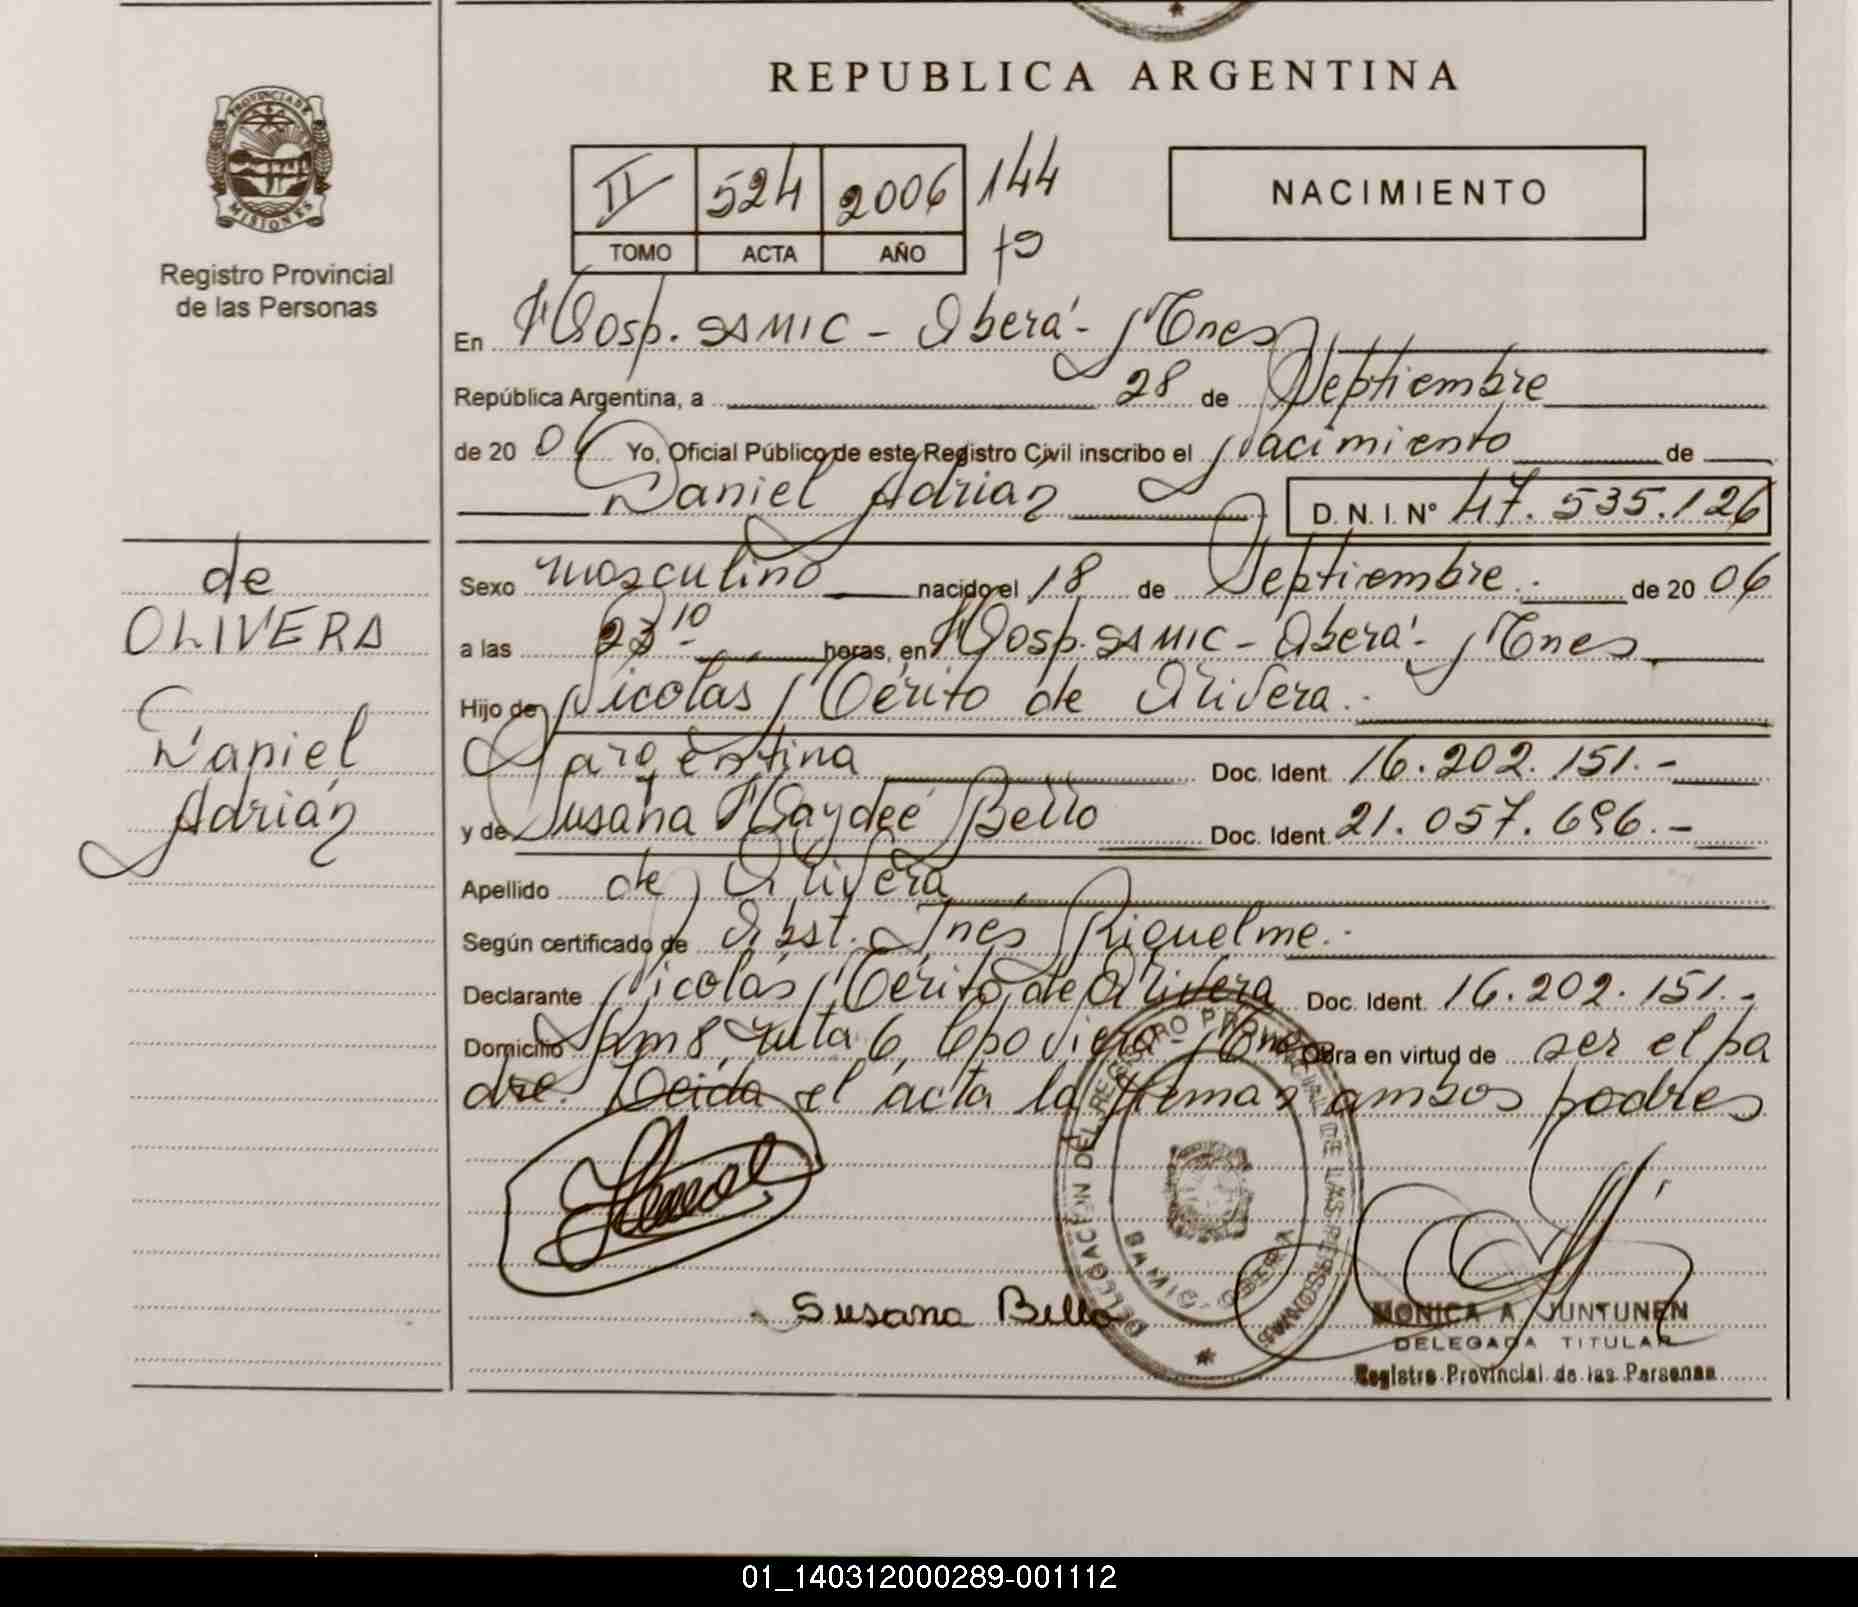 PROVINCIA DE
MISIONES
Registro Provincial
de las Personas
de
OLIVERA
Daniel
Adrián
REPUBLICA ARGENTINA
II 524 2006 144
TOMO ACTA AÑO fº
NACIMIENTO
En Hosp. SAMIC - Oberá - Mnes
República Argentina, a 28 de Septiembre
de 20 06 Yo, Oficial Público de este Registro Civil inscribo el Nacimiento de
Daniel Adrián D.N.I. Nº 47.535.126
Sexo masculino nacido el 18 de Septiembre. de 20 06
a las 23 10 horas, en Hosp. SAMIC - Oberá - Mnes
Hijo de Nicolás Mérito de Olivera.
argentina Doc. Ident. 16.202.151.-
y de Susana Haydeé Bello Doc. Ident. 21.057.696.-
Apellido de Olivera
Según certificado de Obst. Inés Riquelme.
Declarante Nicolás Mérito de Olivera Doc. Ident. 16.202.151.-
Domicilio Km 8, ruta 6, Cpo Viera - Mnes Obra en virtud de ser el pa
dre. Leída el acta la firman ambos padres
Susana Bello
DELEGACION DEL REGISTRO PROVINCIAL DE LAS PERSONAS
SAMIC - OBERA
MONICA A. JUNTUNEN
DELEGADA TITULAR
Registro Provincial de las Personas
01_140312000289-001112